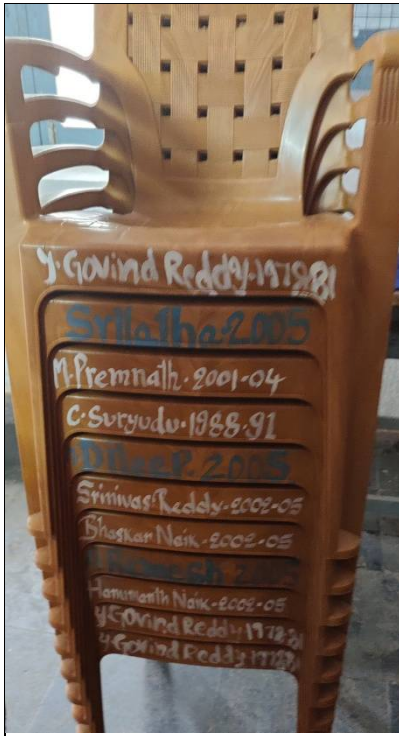 Y.Govind Reddy.1978-81
Srilatha.2005
M.Premnath.2001-04
C.Suryudu.1988-91
DileeP.2005
Srinivas Reddy-2002-05
Bhaskar Naik-2002-05
Ramesh 2005
Hanumanth Naik-2002-05
Y Govind Reddy 1978-81
Y.Govind Reddy 197881